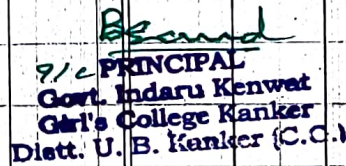 I/c PRINCIPAL
Govt. Indaru Kenwat
Girl's College Kanker
Distt. U. B. Kanker (C.G.)